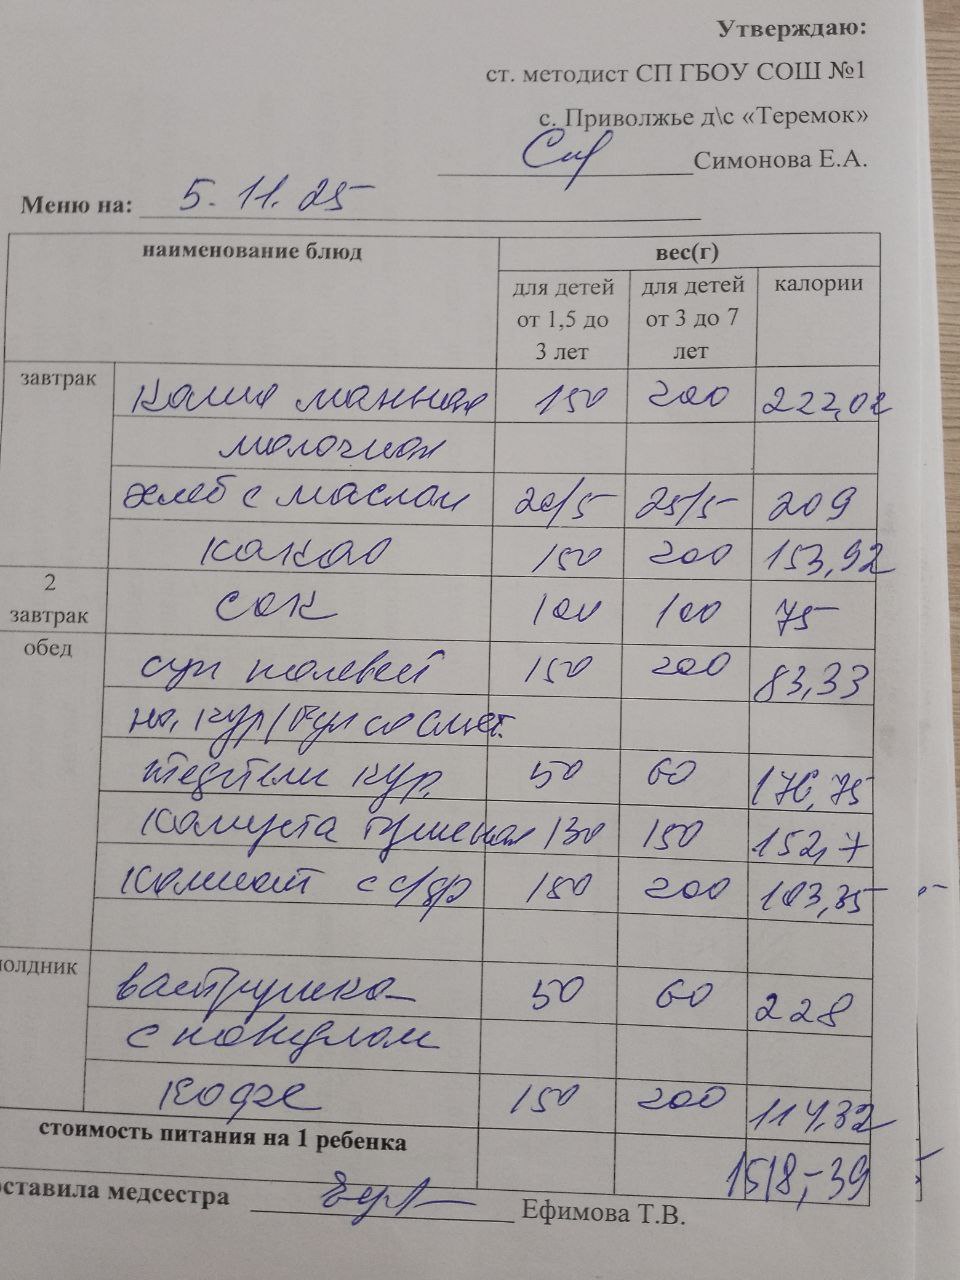 Утверждаю:
ст. методист СП ГБОУ СОШ №1
с. Приволжье д\с «Теремок»
Симонова Е.А.
Меню на: 5.11.25
наименование блюд вес(г)
для детей от 1,5 до 3 лет для детей от 3 до 7 лет калории
завтрак каша манная 150 200 222,02
молочная
хлеб с маслом 20/5 25/5 209
какао 150 200 153,92
2 завтрак сок 100 100 75
обед суп полевой 150 200 83,33
на кур/бул со смет.
тефтели кур. 50 60 176,75
капуста тушеная 130 150 152,7
компот с с/фр 150 200 103,35
олдник ватрушка 50 60 228
с повидлом
кофе 150 200 114,32
стоимость питания на 1 ребенка 1518,-39
оставила медсестра Ефимова Т.В.